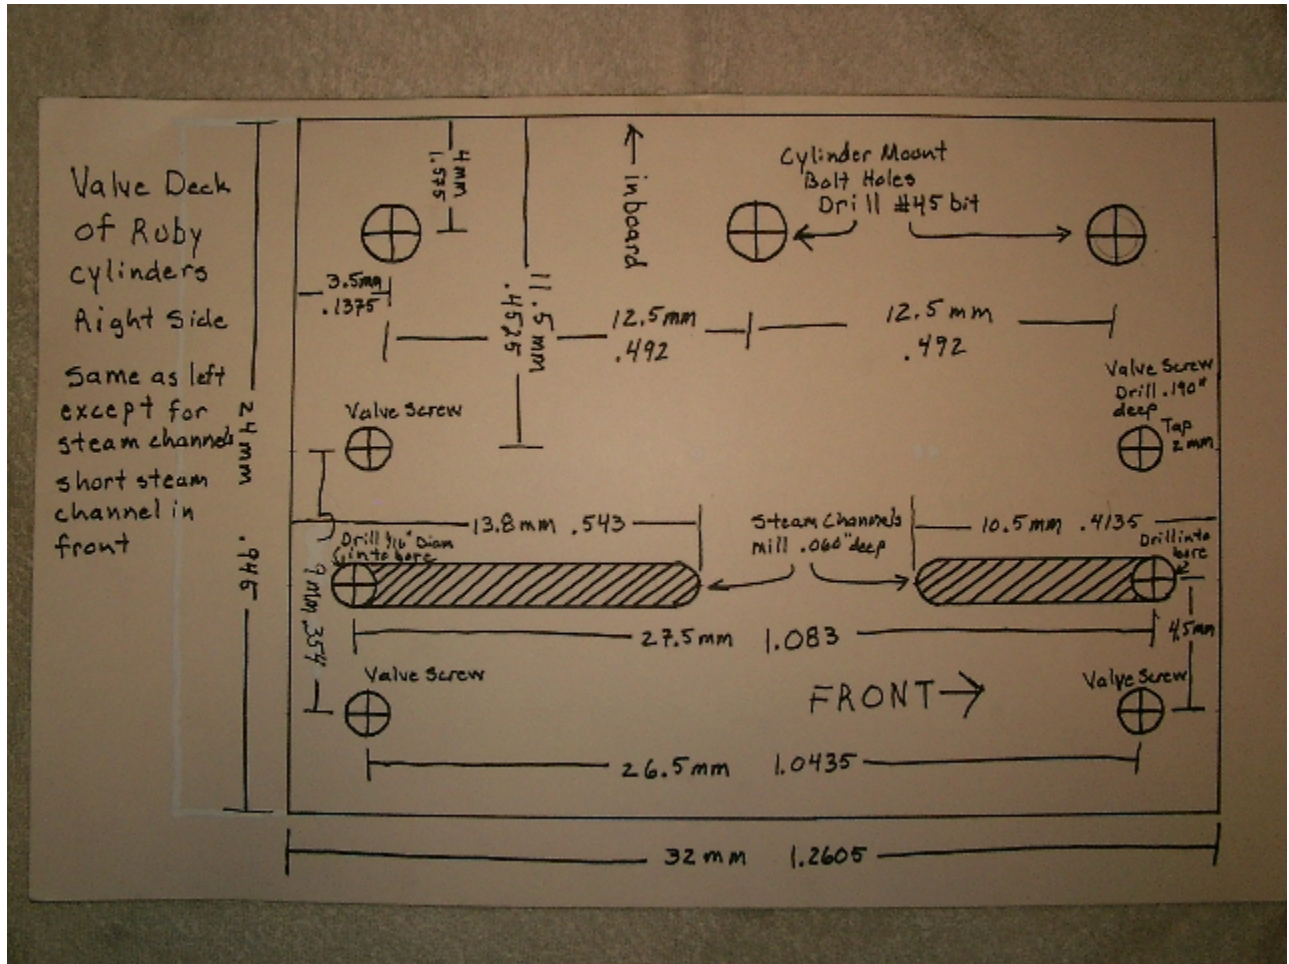 Valve Deck
of Ruby
cylinders
Right Side
Same as left
except for
steam channels
short steam
channel in
front
24mm .945
4mm
1.575
← inboard
Cylinder Mount
Bolt Holes
Drill #45 bit
3.5mm
.1375
11.5mm
.4525
12.5mm
.492
12.5mm
.492
Valve Screw
Valve Screw
Drill .190"
deep
Tap
2mm
13.8mm .543
Steam Channels
Mill .060" deep
10.5mm .4135
Drill 1/16" Diam
into bore
Drill into
bore
9mm .354
27.5mm 1.083
4.5mm
Valve Screw
FRONT→
Valve Screw
26.5mm 1.0435
32mm 1.2605